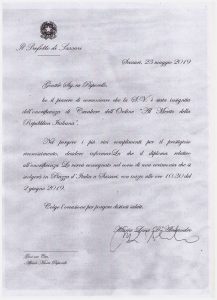 Il Prefetto di Sassari
Sassari, 23 maggio 2019
Gentile Sig.ra Piparello,
ho il piacere di comunicare che la S.V. è stata insignita
dell'onorificenza di Cavaliere dell'Ordine "Al Merito della
Repubblica Italiana".
Nel porgere i più vivi complimenti per il prestigioso
riconoscimento, desidero informarLa che il diploma relativo
all'onorificenza Le verrà consegnato nel corso di una cerimonia che si
svolgerà in Piazza d'Italia a Sassari, con inizio alle ore 10.20 del
2 giugno 2019.
Colgo l'occasione per porgere distinti saluti.
D'Alessandro
Maria